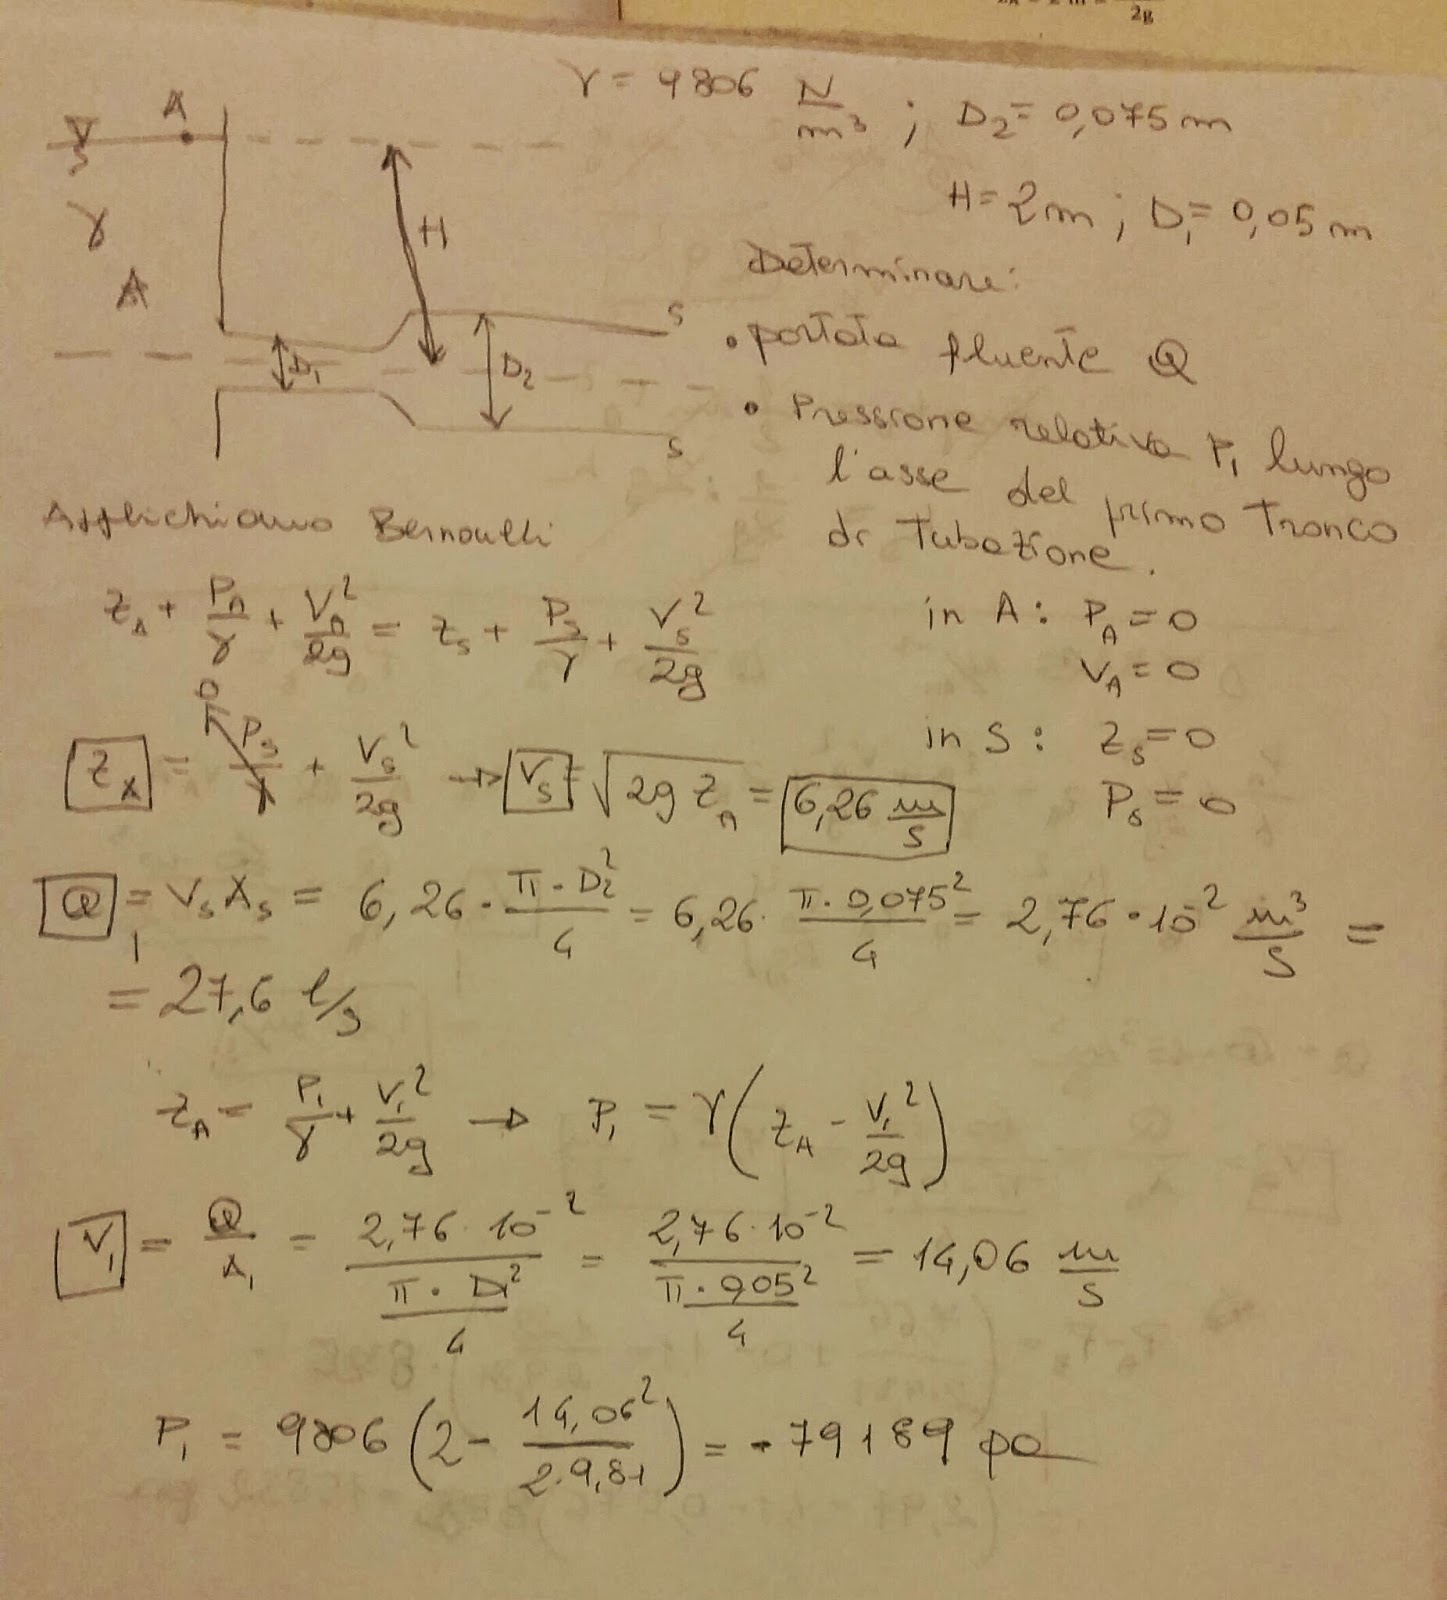 2g
γ = 9806 N/m³ ; D₂ = 0,075 m
H = 2 m ; D₁ = 0,05 m
A
γ
A
H
D₁
D₂
S
S
Determinare:
• portata fluente Q
• Pressione relativa P₁ lungo
l'asse del primo Tronco
di Tubazione.
Applichiamo Bernoulli
z_A + P_A/γ + V_A²/2g = z_S + P_S/γ + V_S²/2g
in A : P_A = 0
V_A = 0
in S : z_S = 0
P_S = 0
z_A = P_S/γ 0 + V_S²/2g → V_S = √(2g z_A) = 6,26 m/s
Q = V_S A_S = 6,26 · π · D₂²/4 = 6,26 · π · 0,075²/4 = 2,76 · 10⁻² m³/s =
= 27,6 l/s
z_A = P₁/γ + V₁²/2g → P₁ = γ (z_A - V₁²/2g)
V₁ = Q/A₁ = 2,76 · 10⁻² / (π · D₁²/4) = 2,76 · 10⁻² / (π · 0,05²/4) = 14,06 m/s
P₁ = 9806 (2 - 14,06²/2·9,81) = - 79189 pa